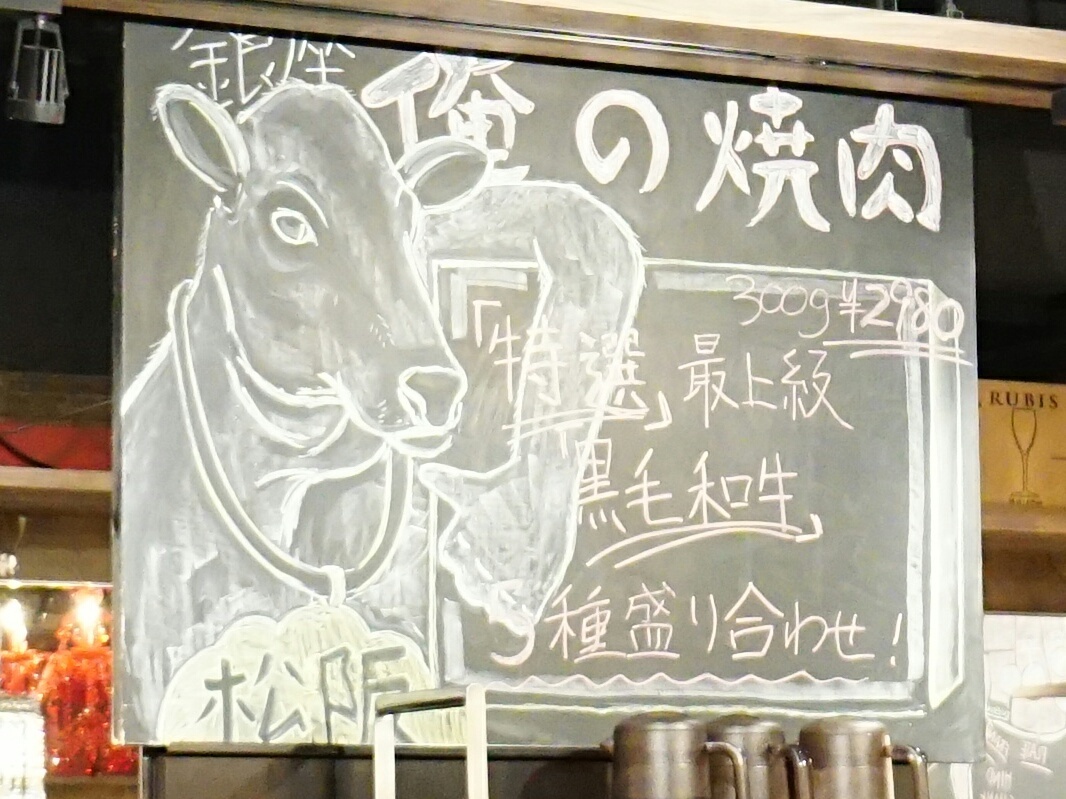 銀座
俺の焼肉
300g ¥2980
「特選」最上級
「黒毛和牛」
種盛り合わせ!
松阪
RUBIS